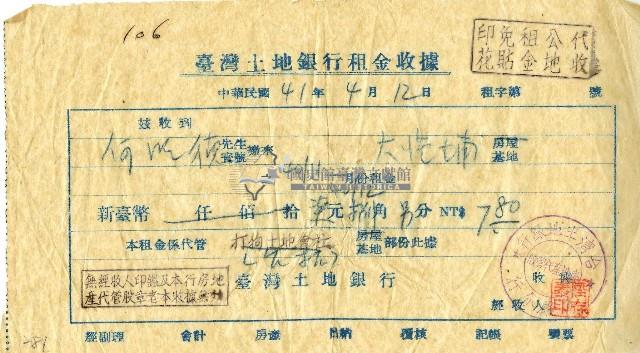 106
代收公地租金免貼印花
臺灣土地銀行租金收據
中華民國41年4月12日 租字第 號
茲收到
何 先生寶號繳來 大 埔 房屋基地
月份租金
國史館臺灣文獻館
TAIWAN HISTORICA
新臺幣 仟 佰 拾 元 角 分 NT$ 7.80
本租金係代管 打狗土地會社 房屋基地 部份此據
無經收人印鑑及本行房地產代管股章者本收據無効
臺灣土地銀行
收 
經收人
經副理 會計 房產 出納 覆核 記帳 驗票
-81